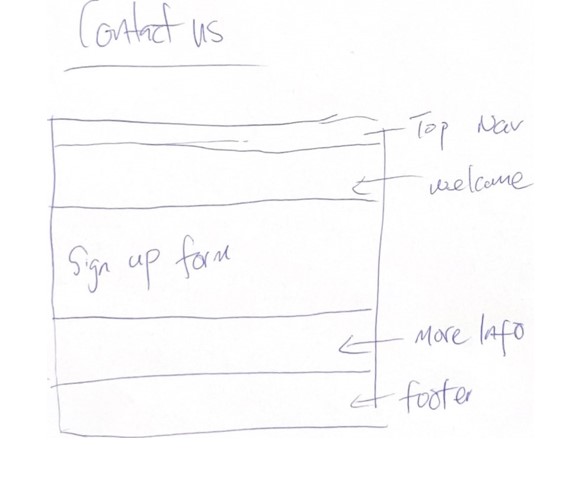 Contact us
Top Nav
welcome
Sign up form
More Info
footer